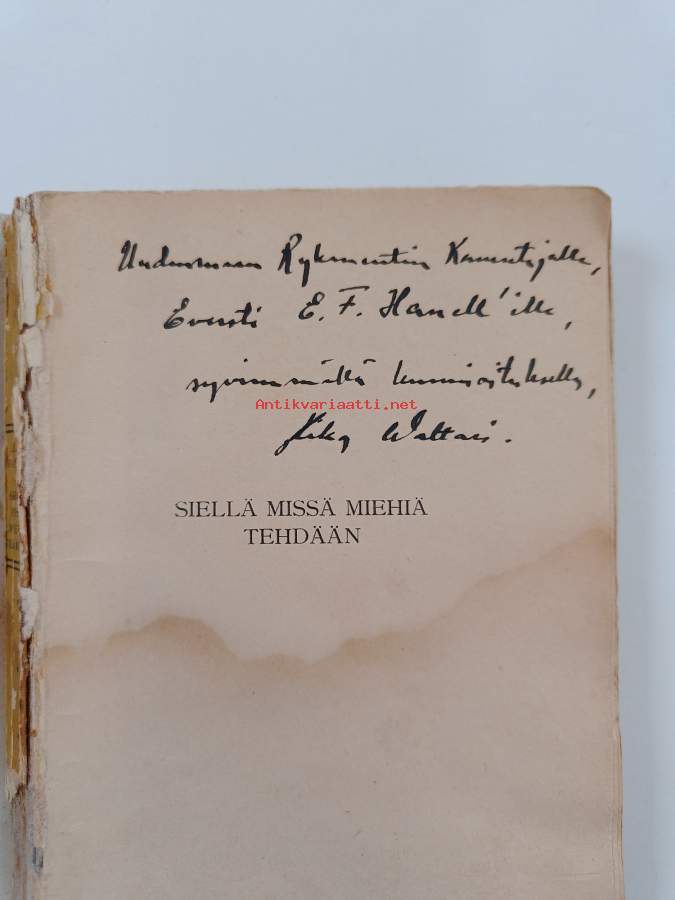 Uudenmaan Rykmentin Komentajalle,
Eversti E. F. Hanell'ille,
syvimmällä kunnioituksella,
Antikvariaatti.net
Mika Waltari.
SIELLÄ MISSÄ MIEHIÄ
TEHDÄÄN